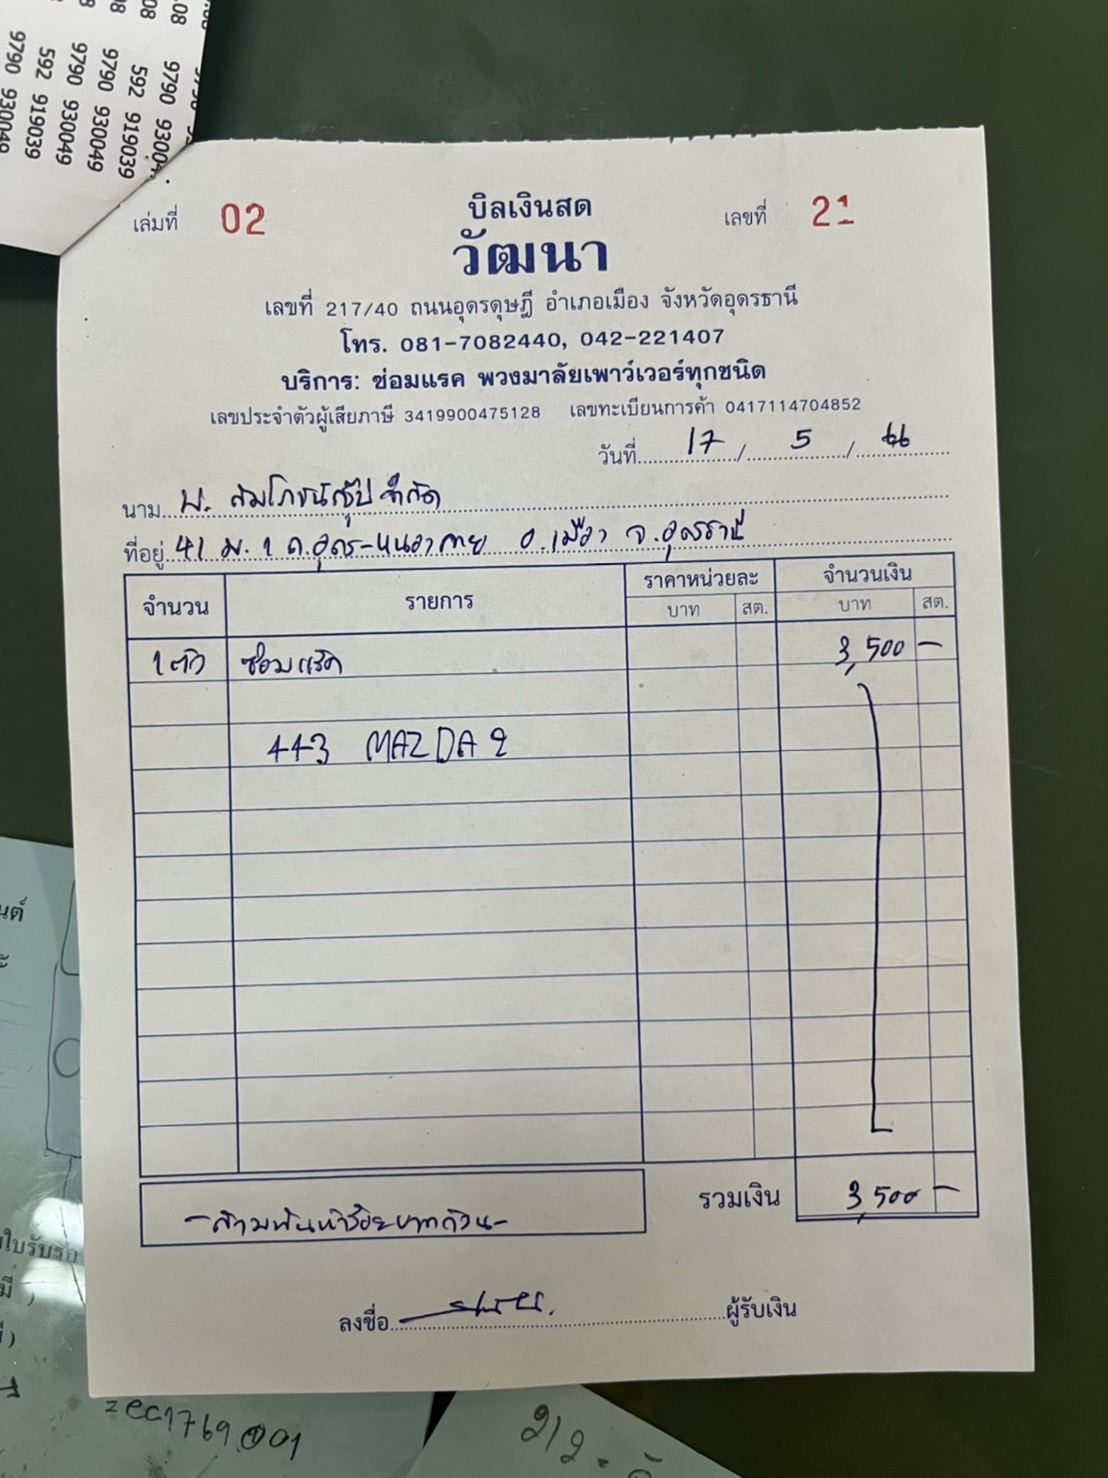 9790 930049
592 919039
9790 930049
9790 930049
592 919039
9790
เล่มที่ 02 บิลเงินสด เลขที่ 21
วัฒนา
เลขที่ 217/40 ถนนอุดรดุษฎี อำเภอเมือง จังหวัดอุดรธานี
โทร. 081-7082440, 042-221407
บริการ: ซ่อมแรค พวงมาลัยเพาว์เวอร์ทุกชนิด
เลขประจำตัวผู้เสียภาษี 3419900475128 เลขทะเบียนการค้า 0417114704852
วันที่ 17 / 5 /
นาม บ. จำกัด
ที่อยู่ 41 ม. 1 ถ.อุดร-หนองคาย อ.เมือง จ.อุดรธานี
จำนวน รายการ ราคาหน่วยละ จำนวนเงิน
บาท สต. บาท สต.
1 ตัว ซ่อมแร็ค 3,500 -
443 MAZDA 2
รวมเงิน 3,500 -
-สามพันห้าร้อยบาทถ้วน-
ลงชื่อ ผู้รับเงิน